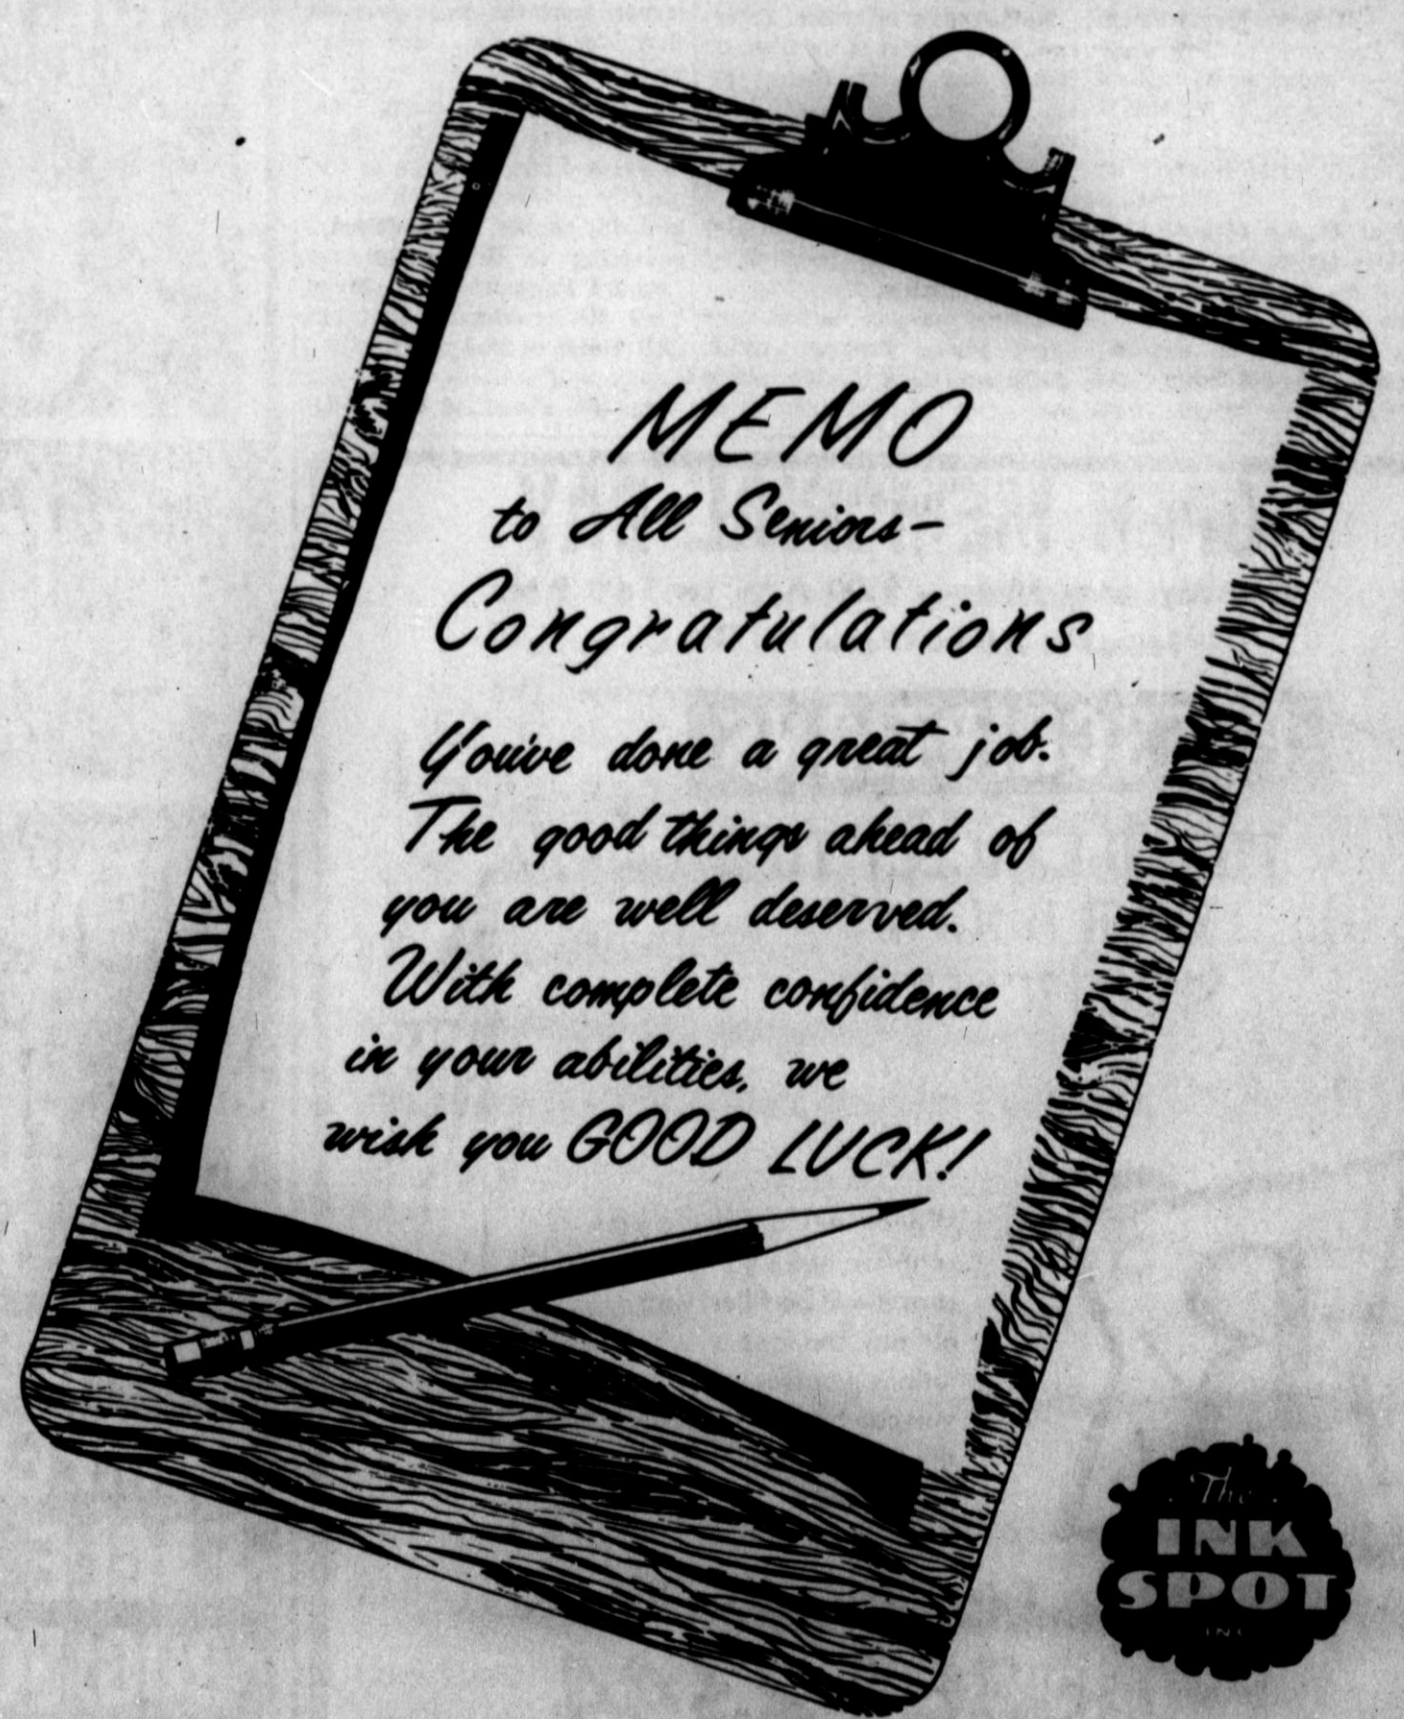 MEMO
to All Seniors—
Congratulations
You've done a great job.
The good things ahead of
you are well deserved.
With complete confidence
in your abilities, we
wish you GOOD LUCK!
The
INK
SPOT
INC